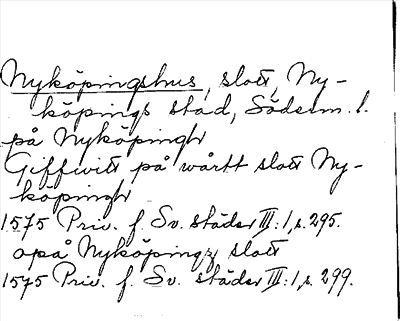 Nyköpingshus, slott, Ny-
köpings stad, Söderm. l.
på Nyköpingh
Giffwitt på wårtt slott Ny-
köpingh
1575 Priv. f. Sv. städer III:1, s. 295.
opå Nyköpingz slott
1575 Priv. f. Sv. städer III:1, s. 299.